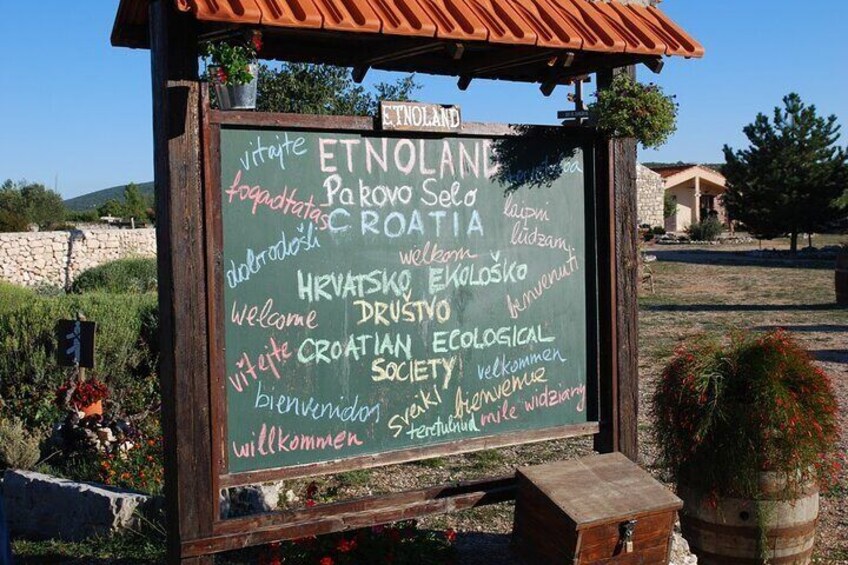 ETNOLAND
ETNOLAND
vítajte
Pakovo Selo
fogadjtatas
CROATIA
laipni
lūdzam
dobrodošli
welkom
benvenuti
HRVATSKO EKOLOŠKO
DRUŠTVO
welcome
CROATIAN ECOLOGICAL
SOCIETY
vitejte
velkommen
bienvenidos
sveiki
bienvenue
teretulnud
mile widziany
willkommen